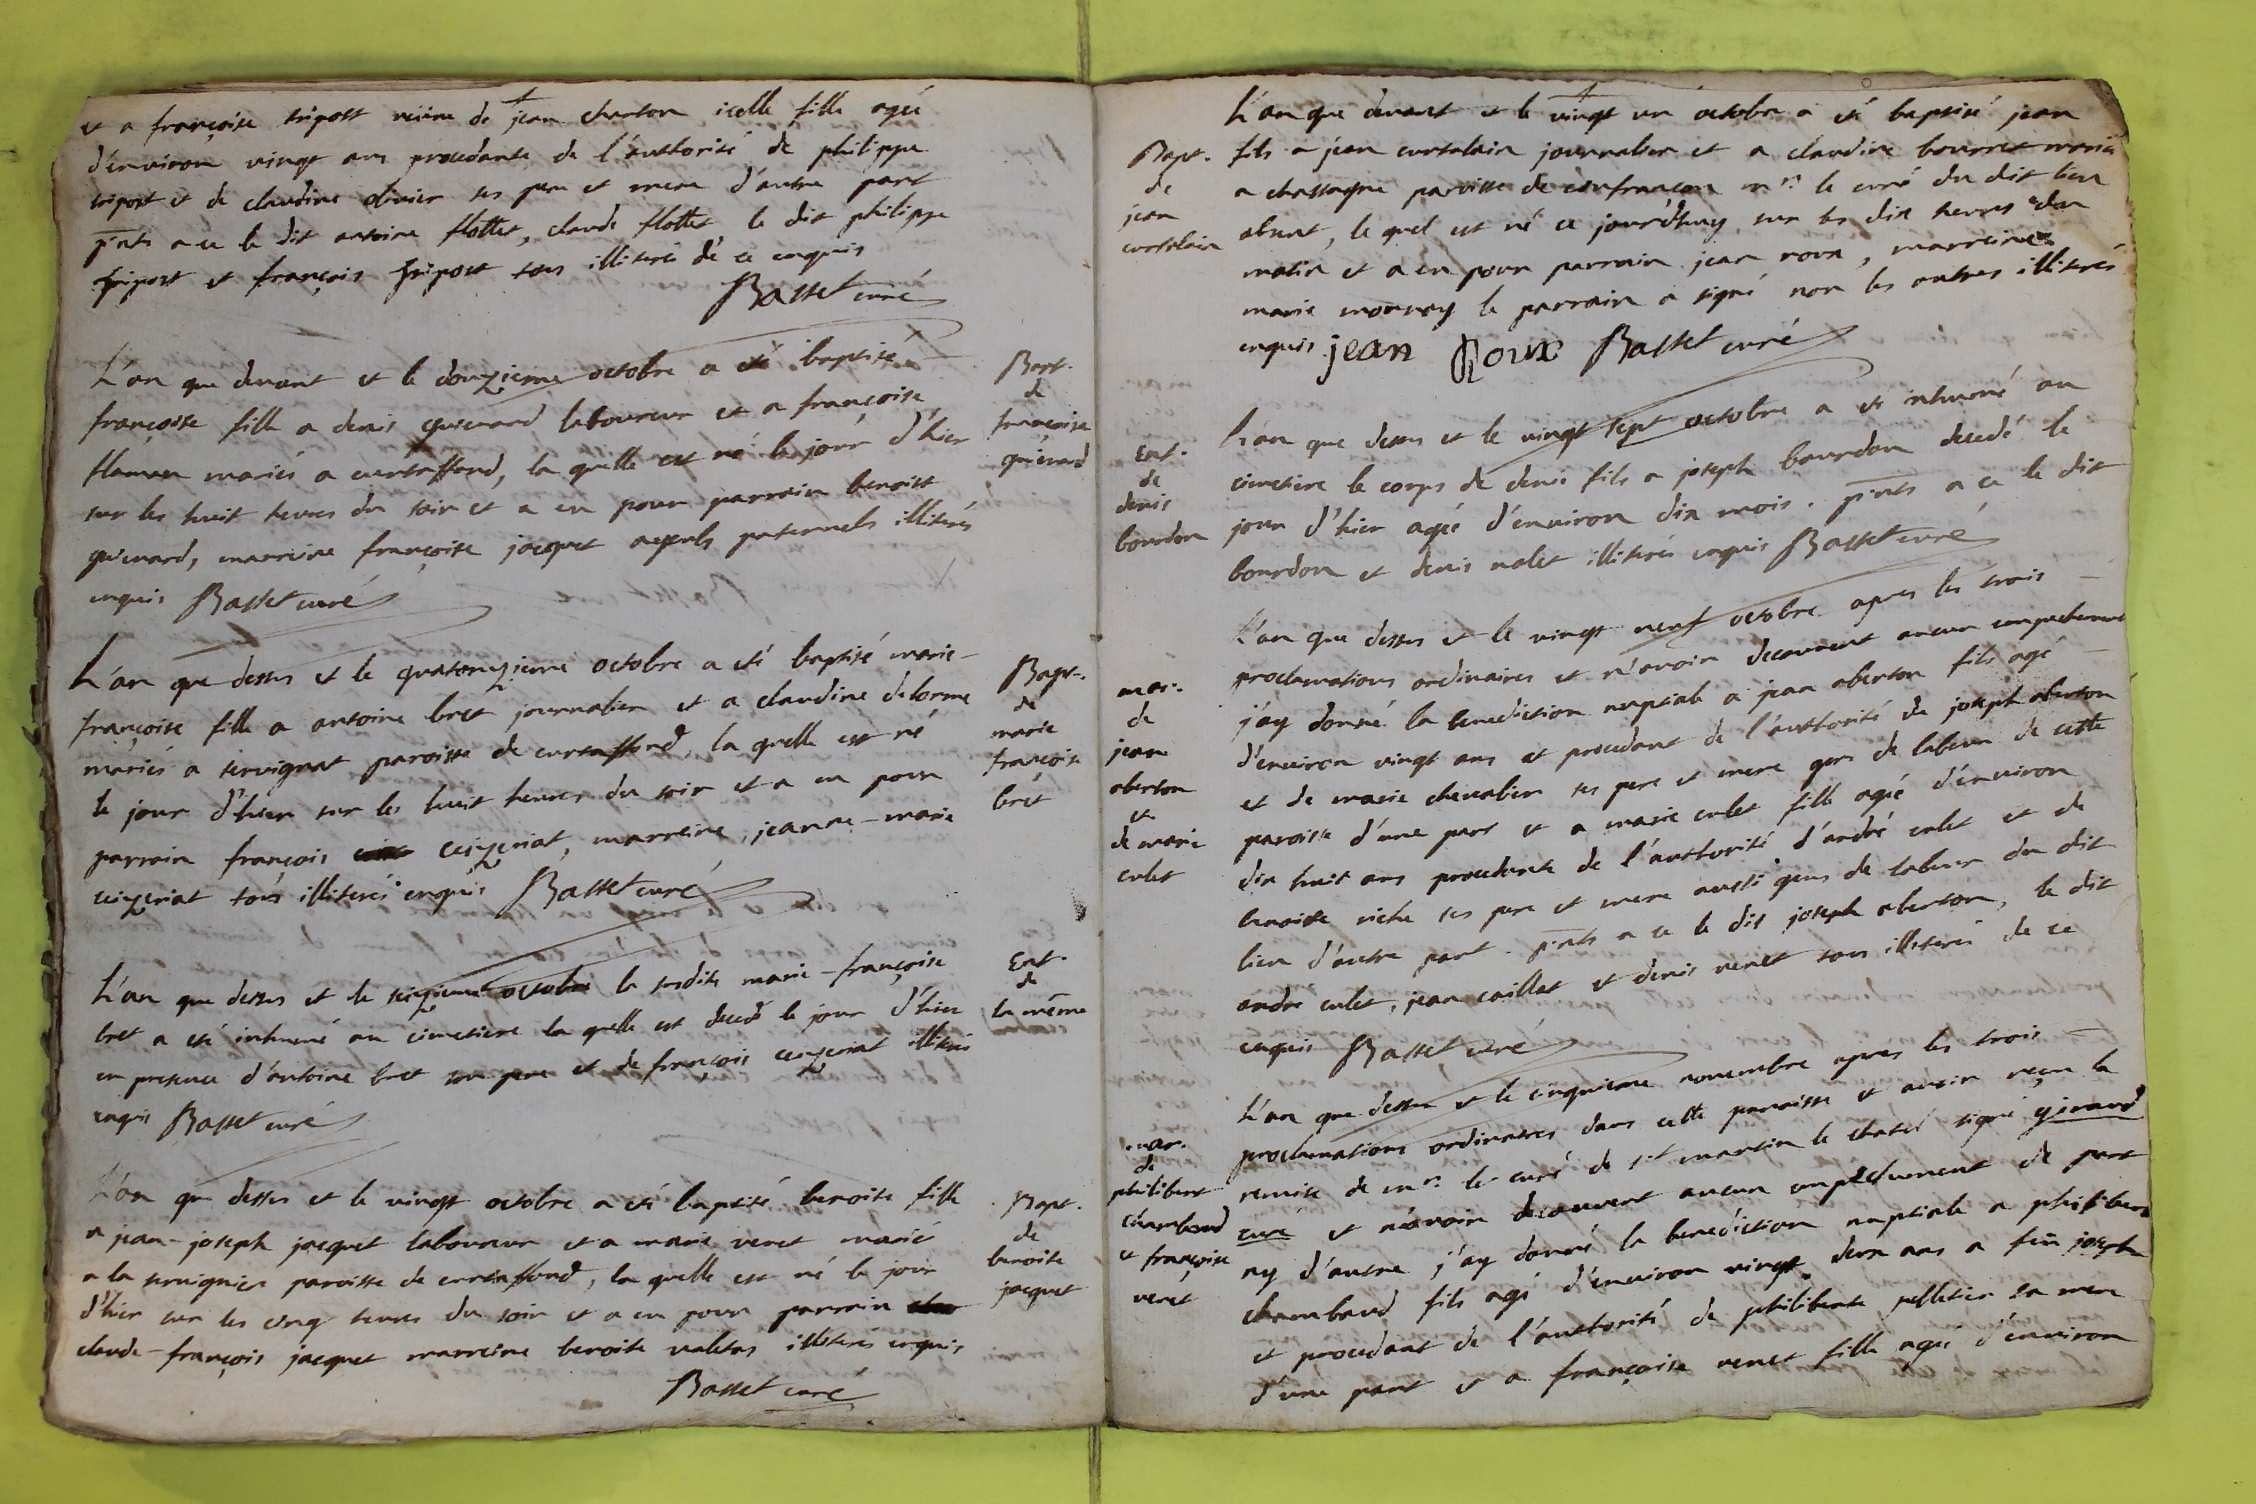 et a françoise tripost veüve de jean charton icelle fille agée
d'environ vingt ans procedante de l'authorité de philippe
tripost et de claudine olivier ses pere et mere d'autre part
pnts a ce le dit antoine flottet, claude flottet, le dit philippe
tripost et françois tripost tous illiterés de ce enquis
Basset curé
L'an que devant et le douzieme octobre a eté baptisé
françoise fille a denis quivard laboureur et a françoise
mariés a curtaffond, la quelle est né le jour d'hier
sur les huit heures du soir et a eu pour parrain benoist
marreine françoise jacquet ayeuls paternels illiterés
enquis Basset curé
Bapt.
de
françoise
L'an que dessus et le quatorzieme octobre a eté baptisé marie-
françoise fille a antoine bret journalier et a claudine delorme
mariés a servignat paroisse de curtaffond, la quelle est né
le jour d'hier sur les huit heures du soir et a eu pour
parrain françois ceizeriat, marreine jeanne-marie
ceizeriat tous illiterés enquis Basset curé
Bapt.
de
marie
françoise
bret
L'an que dessus et le seizieme octobre la susdite marie-françoise
bret a eté inhumé au cimetiere la quelle est decedé le jour d'hier
en presence d'antoine bret son pere et de françois ceizeriat illiterés
enquis Basset curé
Ent.
de
la même
L'an que dessus et le vingt octobre a eté baptisé benoite fille
a jean-joseph jacquet laboureur et a marie veret mariés
a la paroisse de curtaffond, la quelle est né le jour
d'hier sur les cinq heures du soir et a eu pour parrain
claude-françois jacquet marreine benoite illiterés enquis
Basset curé
Bapt.
de
benoite
jacquet
L'an que devant et le vingt un octobre a eté baptisé jean
fils a jean curtelain journalier et a claudine bourret mariés
a chassagne paroisse de confrançon mr. le curé du dit lieu
absent, le quel est né ce jourd'huy sur les dix heures du
matin et a eu pour parrain jean roux, marreine
marie morney le parrain a signé non les autres illiterés
enquis jean Roux Basset curé
Bapt.
de
jean
curtelain
L'an que dessus et le vingt sept octobre a eté inhumé au
cimetiere le corps de denis fils a joseph bourdon decedé le
jour d'hier agée d'environ dix mois. pnts a ce le dit
bourdon et denis nalet illiterés enquis Basset curé
Ent.
de
denis
bourdon
L'an que dessus et le vingt neuf octobre apres les trois
proclamations ordinaires et n'avoir decouvert aucun empechement
j'ay donné la benediction nuptiale a jean oberton fils agé
d'environ vingt ans et procedant de l'authorité de joseph oberton
et de marie chevalier ses pere et mere gens de labeur de cette
paroisse d'une part et a marie culet fille agée d'environ
dix huit ans procedante de l'authorité d'andré culet et de
benoite ses pere et mere aussi gens de labeur du dit
lieu d'autre part pnts a ce le dit joseph oberton, le dit
andré culet, jean caillat et denis veret tous illiterés de ce
enquis Basset curé
mar.
de
jean
oberton
et
de marie
culet
L'an que dessus et le cinquieme novembre apres les trois
proclamations ordinaires dans cette paroisse et avoir reçu la
remise de mr. le curé de st martin le chatel signé girard
curé et n'avoir decouvert aucun empechement de part
ny d'autre j'ay donné la benediction nuptiale a philibert
chambaud fils agé d'environ vingt deux ans a feu joseph
et procedant de l'authorité de philiberte pelletier sa mere
d'une part et a françoise veret fille agée d'environ
mar.
de
philibert
chambaud
et françoise
veret